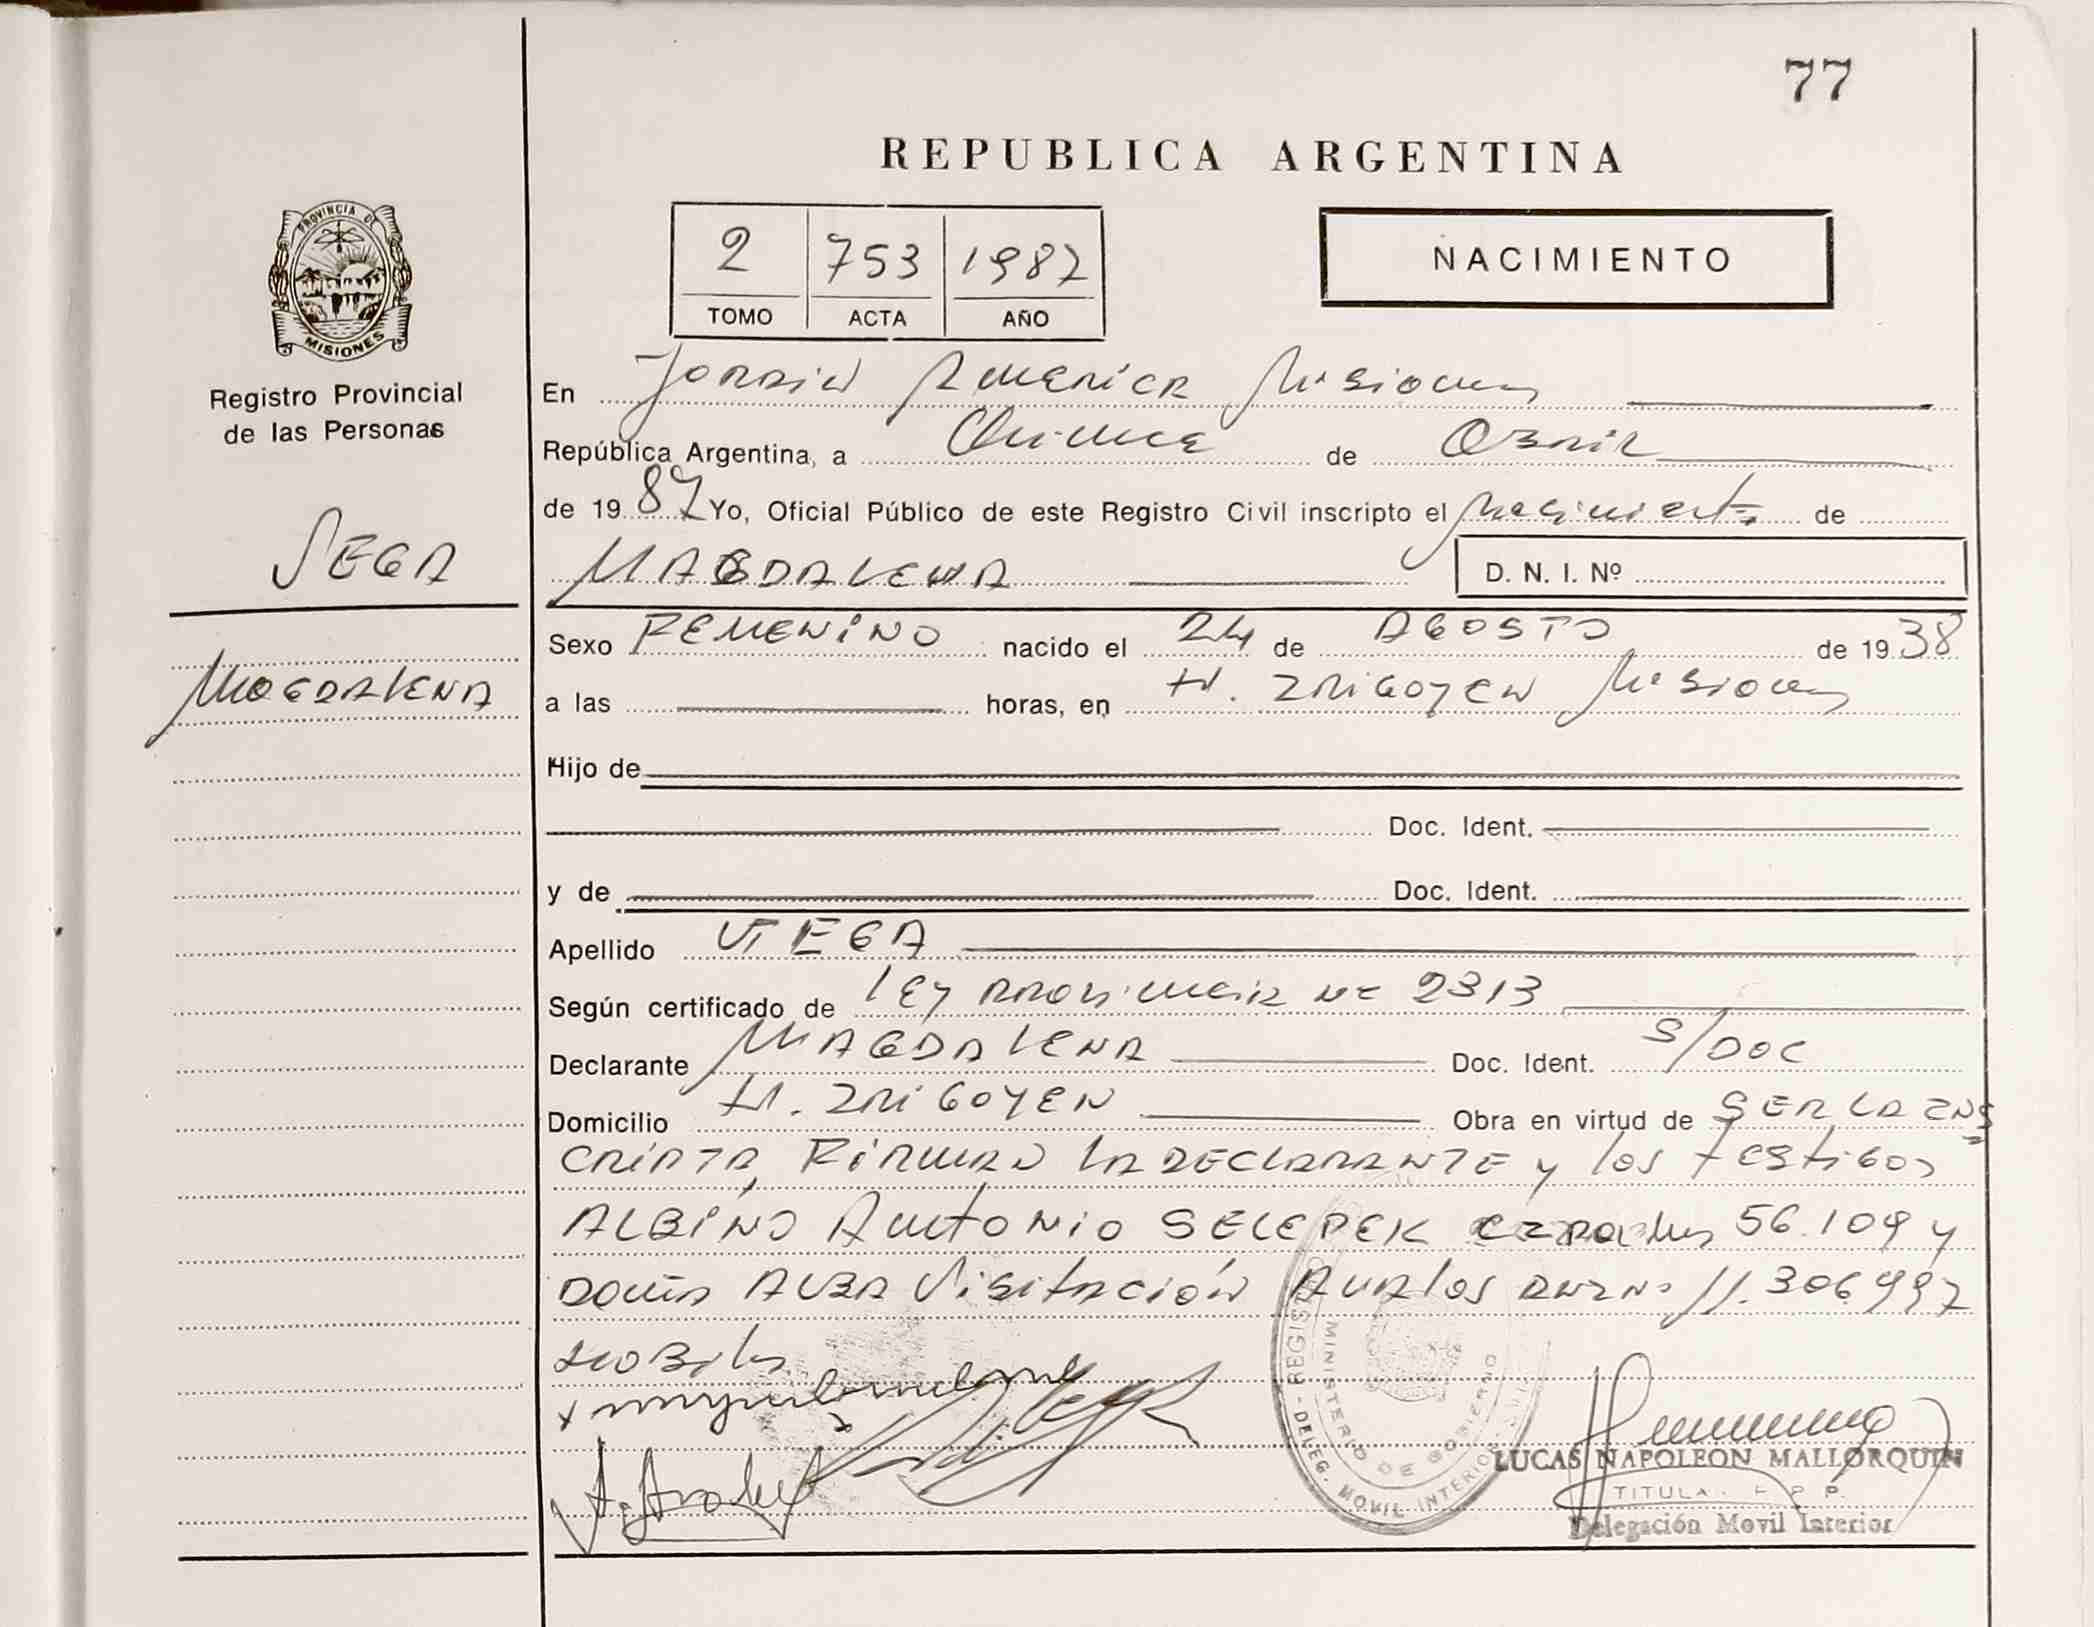 77
REPUBLICA ARGENTINA
PROVINCIA DE MISIONES
2 753 1987
TOMO ACTA AÑO
NACIMIENTO
Registro Provincial
de las Personas
SEGA
MAGDALENA
En Jardin America Misiones
República Argentina, a Quince de Abril
de 1987 Yo, Oficial Público de este Registro Civil inscripto el Nacimiento de
MAGDALENA D. N. I. Nº
Sexo FEMENINO nacido el 24 de AGOSTO de 1938
a las horas, en H. IRIGOYEN Misiones
Hijo de
Doc. Ident.
y de Doc. Ident.
Apellido SEGA
Según certificado de Ley Provincial Nº 2313
Declarante MAGDALENA Doc. Ident. S/DOC
Domicilio H. IRIGOYEN Obra en virtud de SER LA INS
CRIPTA, FIRMAN LA DECLARANTE y los testigos
ALBINO Antonio SELEPEK 56.109 y
DOÑA ALBA Visitación Avalos DNI Nº 11.306.997
HABILES
REGISTRO
MINISTERIO DE GOBIERNO
DELEG. MOVIL INTERIOR
LUCAS NAPOLEON MALLORQUIN
TITULA. P. P.
Delegación Movil Interior